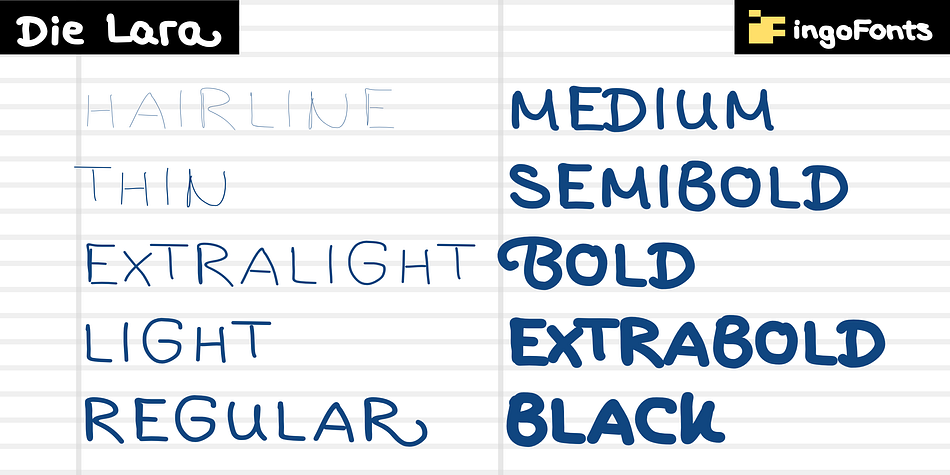 Die Lara
ingoFonts
HAIRLINE
THIN
EXTRALIGHT
LIGHT
REGULAR
MEDIUM
SEMIBOLD
BOLD
EXTRABOLD
BLACK